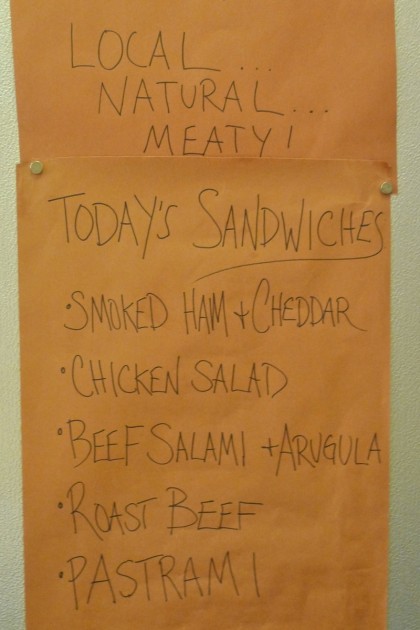 LOCAL...
NATURAL...
MEATY!
TODAY'S SANDWICHES
•SMOKED HAM + CHEDDAR
•CHICKEN SALAD
•BEEF SALAMI + ARUGULA
•ROAST BEEF
•PASTRAMI